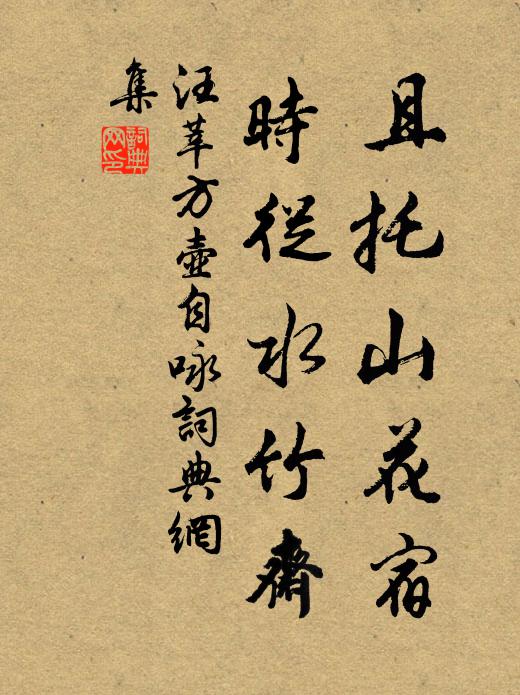 且托山花宿
時從水竹齋
汪莘方壺自咏詞典網
集
詞典
网印